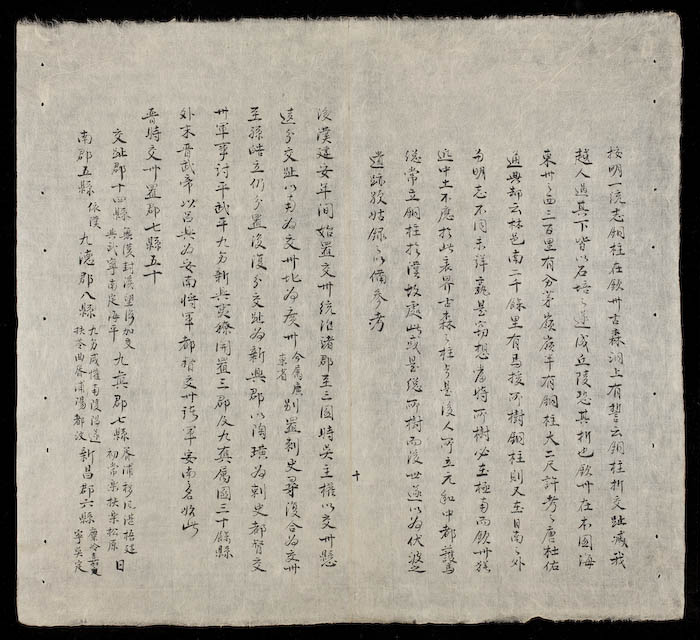 按明一統志銅柱在欽州古森洞上有誓云銅柱折交趾滅我
越人過其下皆以石培之遂成丘陵恐其折也欽州在本國海
東州之西三百里有分茅嶺嶺半有銅柱大二尺許考之唐杜佑
通典却云林邑南二千餘里有馬援所樹銅柱則又在日南之外
與明志不同未詳孰是竊想當時所樹必在極南而欽州猶
近中土不應於此表界古森之柱必是後人所立元和中都護馬
總常立銅柱於漢故處此或是總所樹而後世遂以為伏波之
遺跡歟姑錄以備參考
十
後漢建安年間始置交州統淮諸郡至三國時吳主權以交州懸
遠分交趾以南為交州北為廣州今屬廣東省別置刺史尋復合為交州
至孫皓立仍分置後復分交趾為新興郡以陶璜為刺史都督交
州軍事討平武平九真新興夷獠開置三郡及九真屬國三十餘縣
外末晉武帝以呂興為安南將軍都督交州諸軍安南名始此
晉時交州置郡七縣五十
交趾郡十四縣 九真郡七縣 日
南郡五縣 九德郡八縣 新昌郡六縣